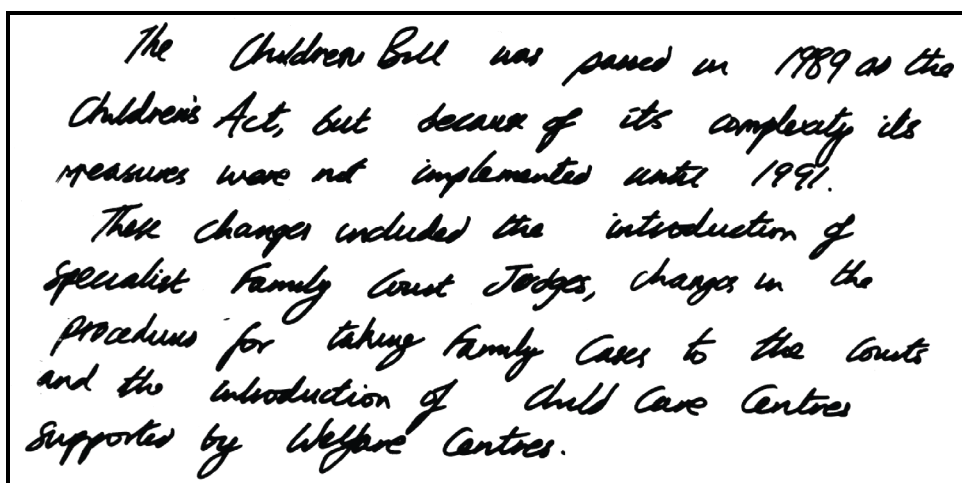 The Children Bill was passed in 1989 as the
Children's Act, but because of its complexity its
measures were not implemented until 1991.
These changes included the introduction of
specialist Family Court Judges, changes in the
procedures for taking Family Cases to the courts
and the introduction of Child Care Centres
supported by Welfare Centres.